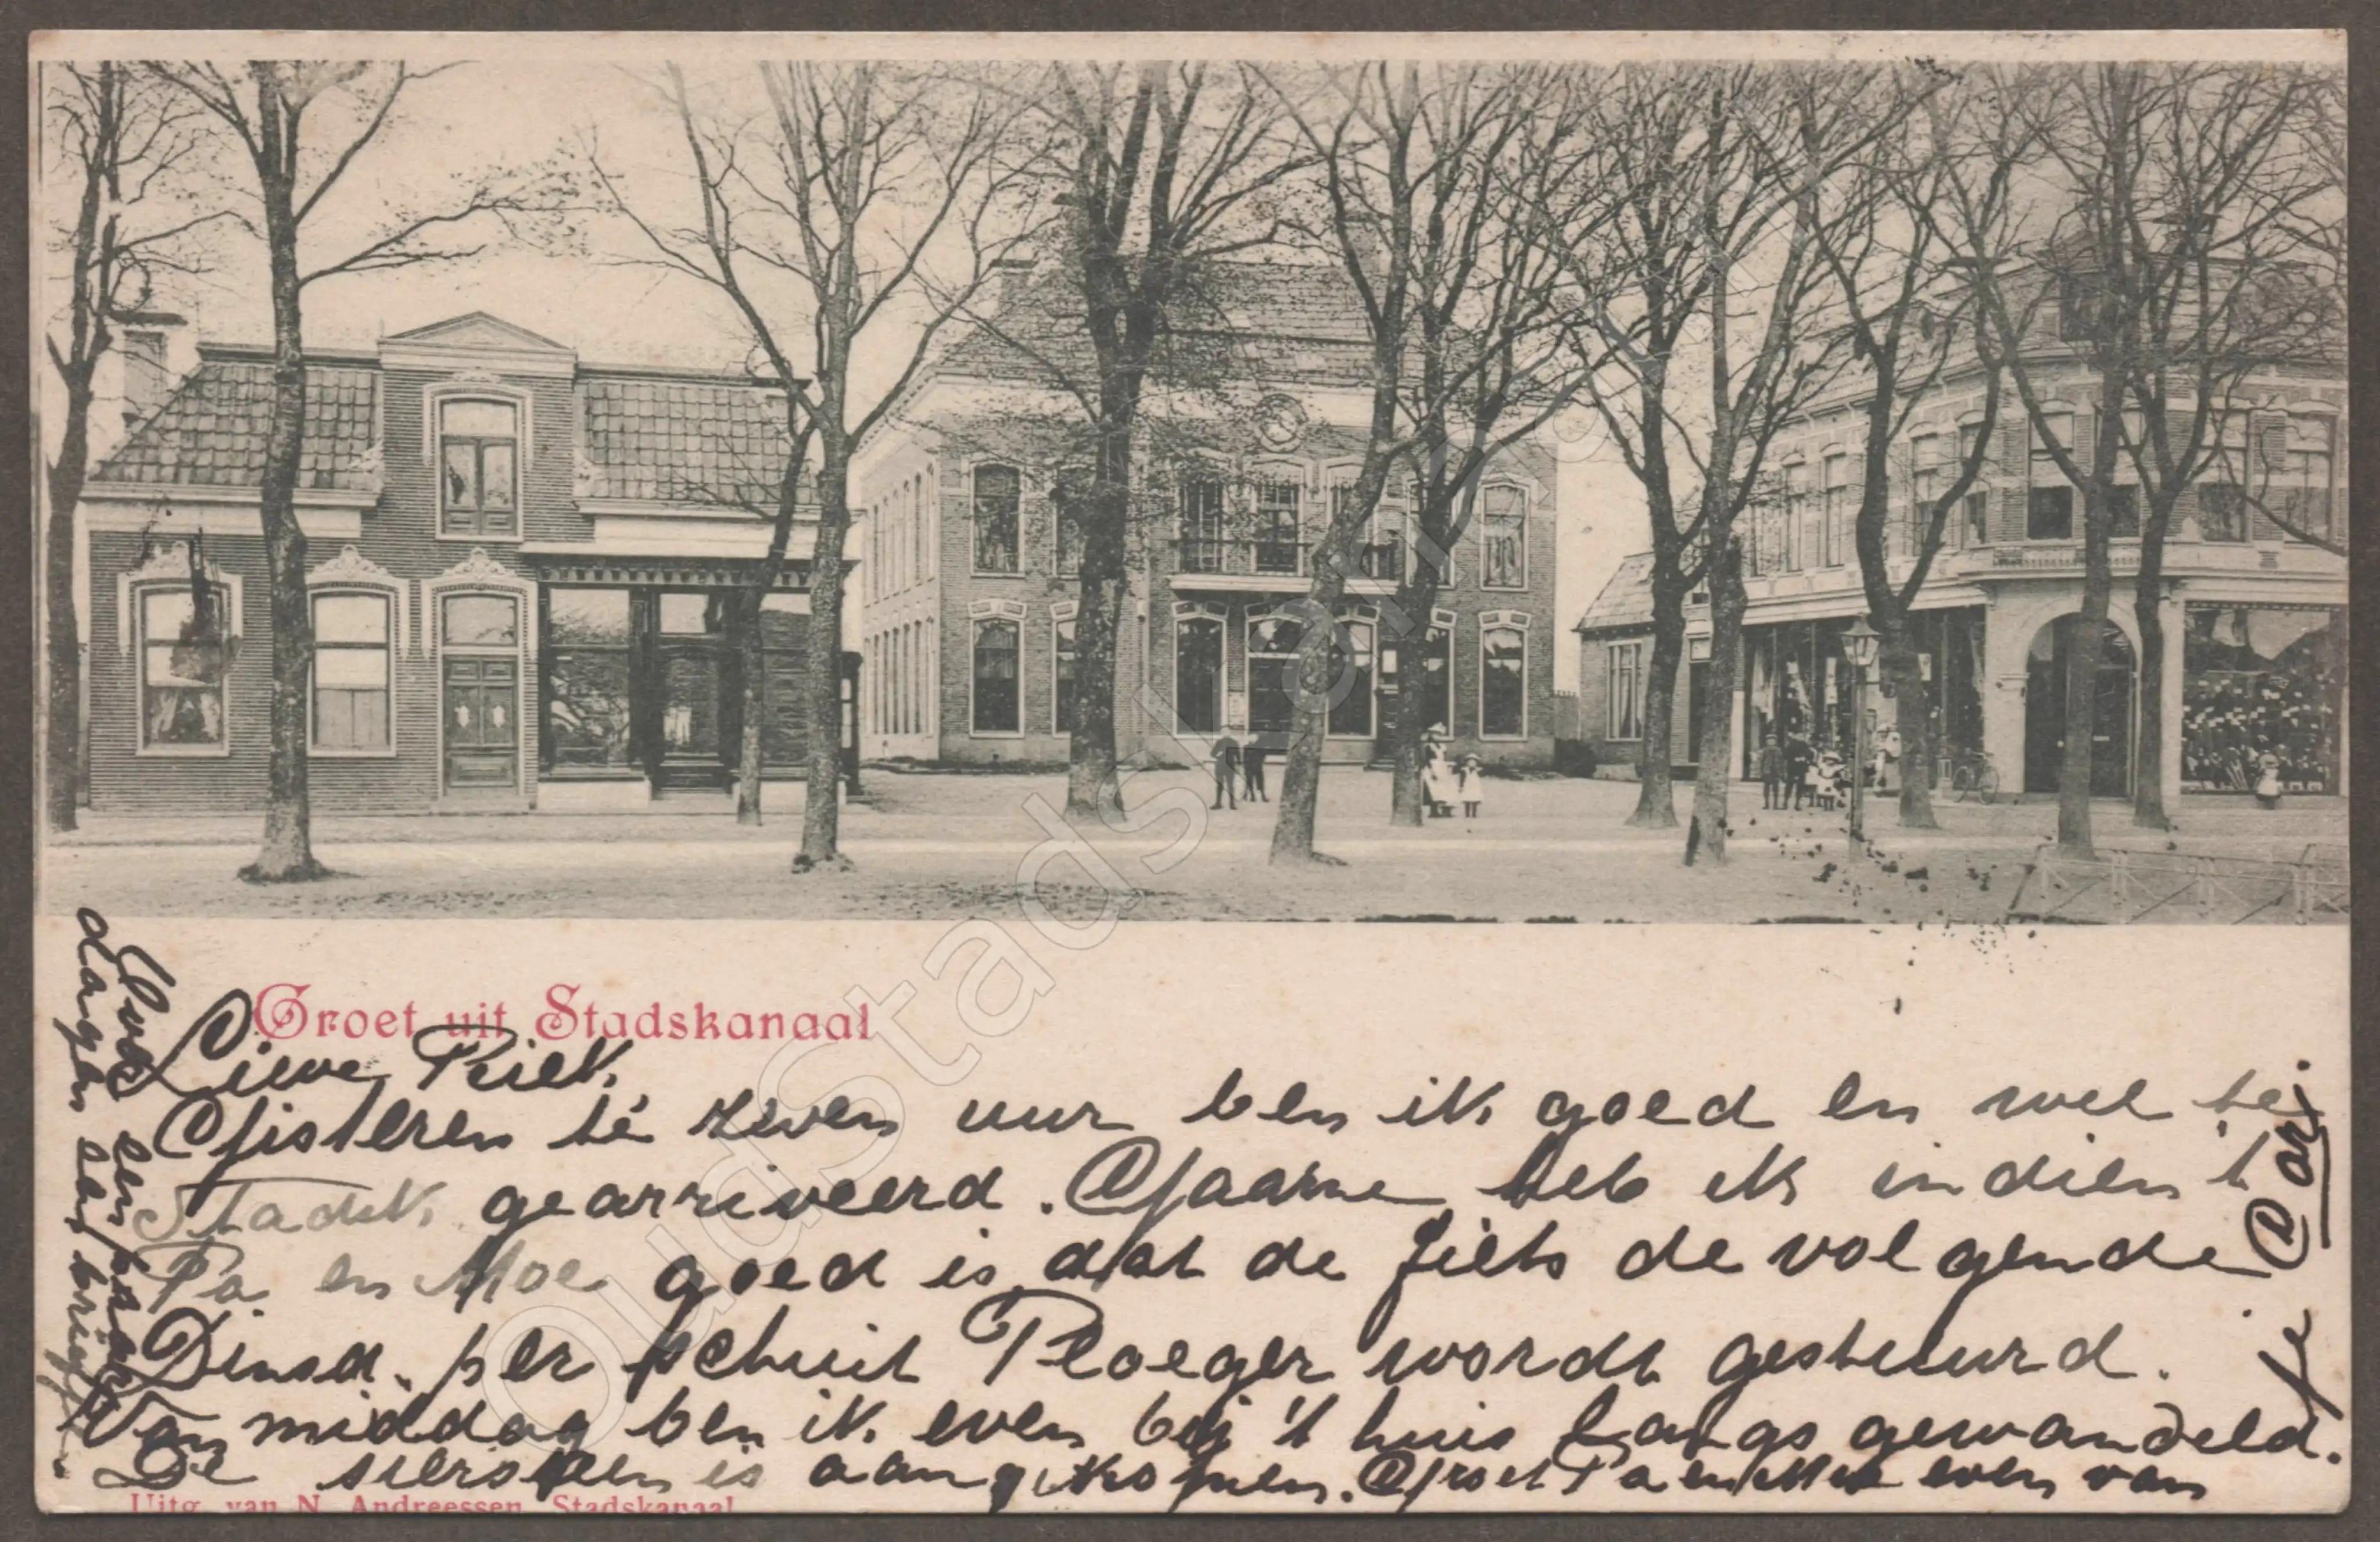 Groet uit Stadskanaal
Lieve Riek
Gisteren te zeven uur ben ik goed en wel te
Stadsk. gearriveerd. Gaarne heb ik indien 't
Pa en Moe goed is dat de fiets de volgende
Dinsd. per schuit Ploeger wordt gestuurd.
Van middag ben ik even bij 't huis langs gewandeld.
De is aangekomen. Groet Pa en Moe even van
je
Cor.
een paar
dagen een brief
Uitg. van N. Andreessen, Stadskanaal
OudStadskanaal.nl